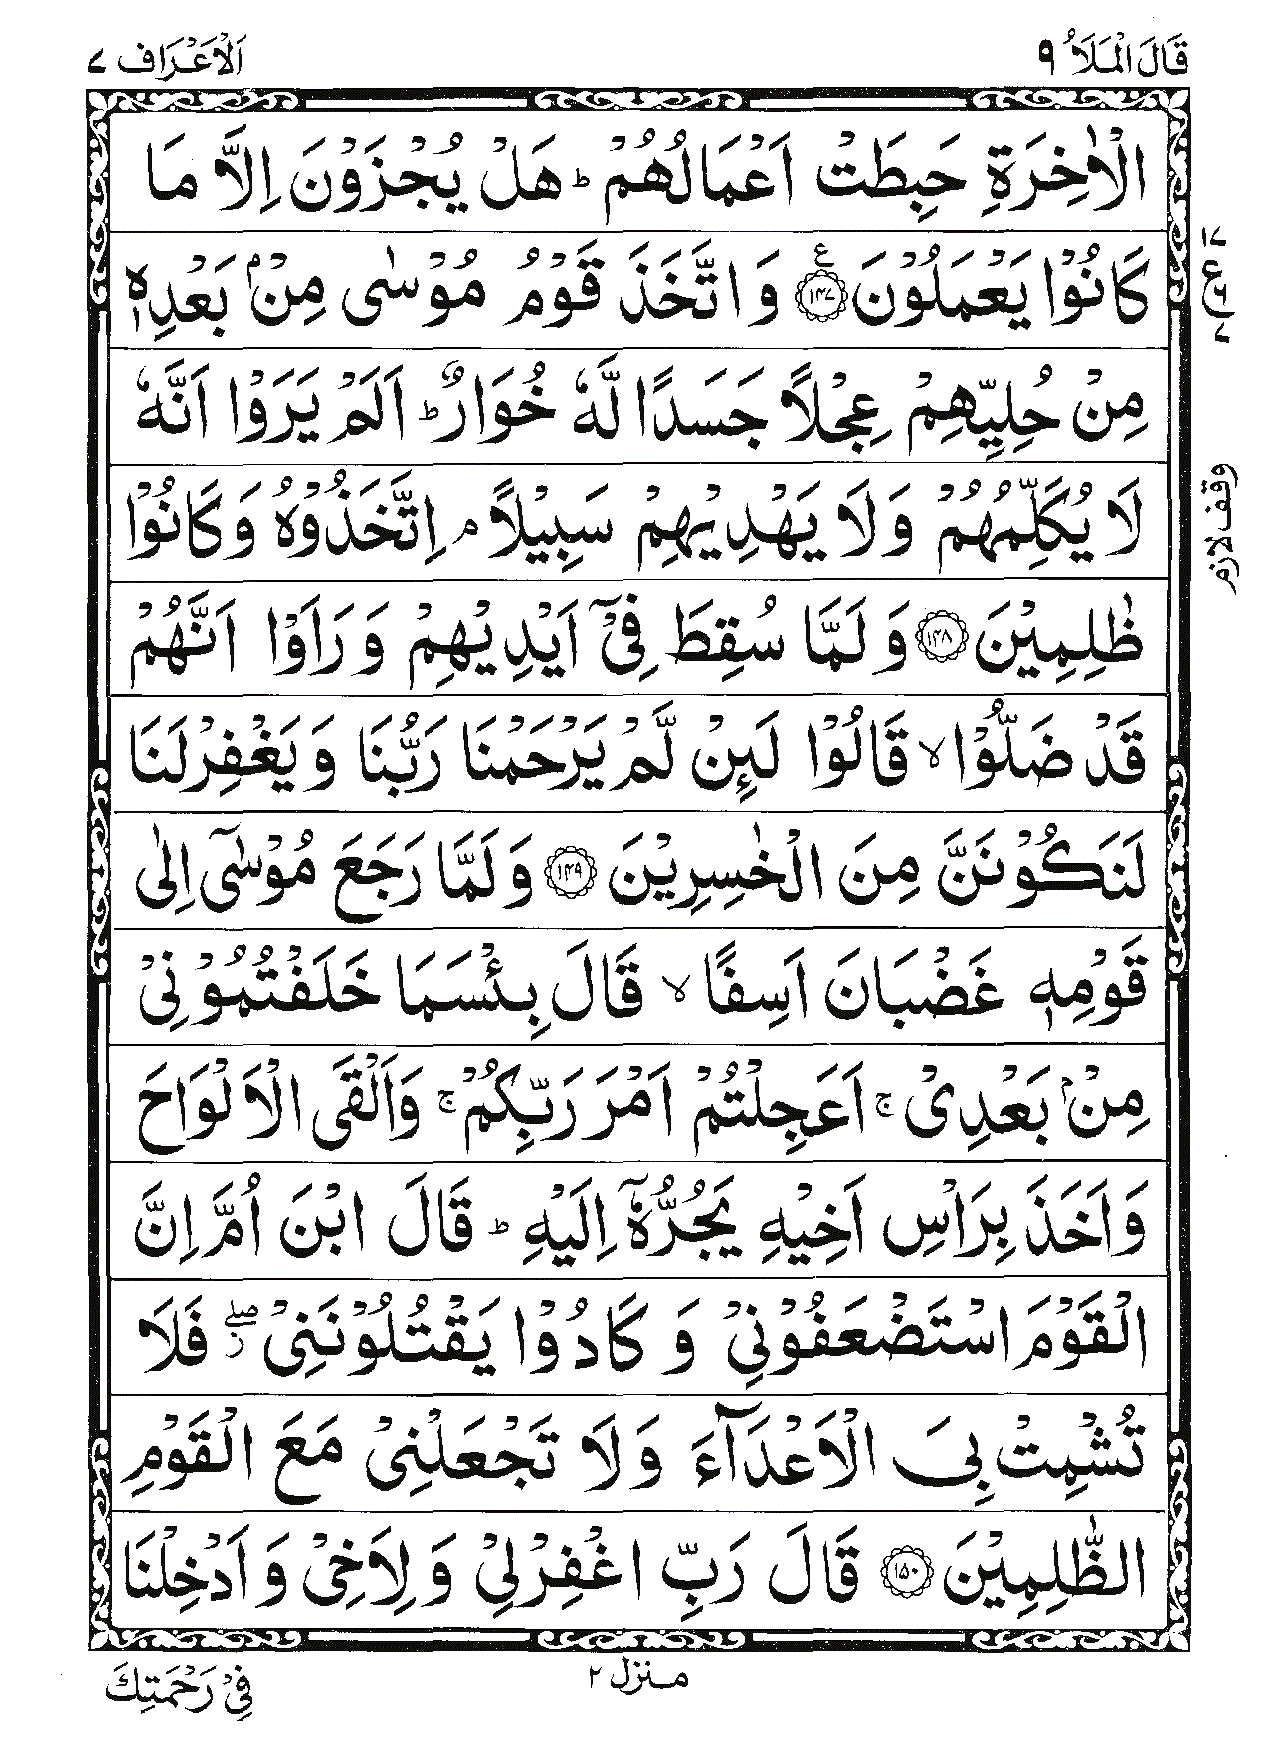 قَالَ الْمَلَاُ ٩
اَلْاَعْرَاف ٧
الْاٰخِرَةِ حَبِطَتْ اَعْمَالُهُمْ ؕ هَلْ يُجْزَوْنَ اِلَّا مَا
كَانُوْا يَعْمَلُوْنَ ﴿١٤٧﴾ ع وَ اتَّخَذَ قَوْمُ مُوْسٰى مِنْۢ بَعْدِهٖ
مِنْ حُلِيِّهِمْ عِجْلًا جَسَدًا لَّهٗ خُوَارٌ ؕ اَلَمْ يَرَوْا اَنَّهٗ
لَا يُكَلِّمُهُمْ وَلَا يَهْدِيْهِمْ سَبِيْلًا ۘ اِتَّخَذُوْهُ وَكَانُوْا
ظٰلِمِيْنَ ﴿١٤٨﴾ وَ لَمَّا سُقِطَ فِيْۤ اَيْدِيْهِمْ وَ رَاَوْا اَنَّهُمْ
قَدْ ضَلُّوْا ۙ قَالُوْا لَئِنْ لَّمْ يَرْحَمْنَا رَبُّنَا وَ يَغْفِرْ لَنَا
لَنَكُوْنَنَّ مِنَ الْخٰسِرِيْنَ ﴿١٤٩﴾ وَ لَمَّا رَجَعَ مُوْسٰۤى اِلٰى
قَوْمِهٖ غَضْبَانَ اَسِفًا ۙ قَالَ بِئْسَمَا خَلَفْتُمُوْنِيْ
مِنْۢ بَعْدِيْ ۚ اَعَجِلْتُمْ اَمْرَ رَبِّكُمْ ۚ وَاَلْقَى الْاَلْوَاحَ
وَاَخَذَ بِرَاْسِ اَخِيْهِ يَجُرُّهٗۤ اِلَيْهِ ؕ قَالَ ابْنَ اُمَّ اِنَّ
الْقَوْمَ اسْتَضْعَفُوْنِيْ وَ كَادُوْا يَقْتُلُوْنَنِيْ ۖز فَلَا
تُشْمِتْ بِيَ الْاَعْدَآءَ وَ لَا تَجْعَلْنِيْ مَعَ الْقَوْمِ
الظّٰلِمِيْنَ ﴿١٥٠﴾ قَالَ رَبِّ اغْفِرْ لِيْ وَ لِاَخِيْ وَ اَدْخِلْنَا
فِيْ رَحْمَتِكَ
مـنزل ٢
١٧
ع
٦
٧
وقف لازم